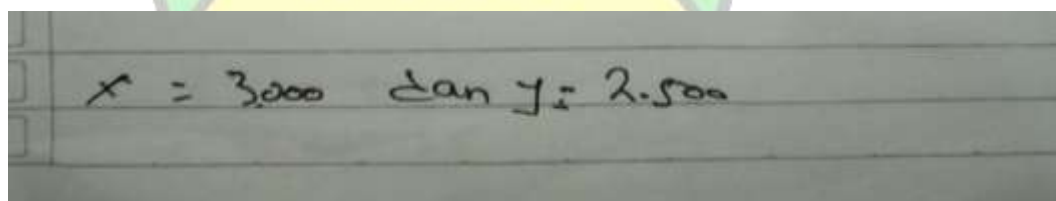 x = 3.000 dan y = 2.500